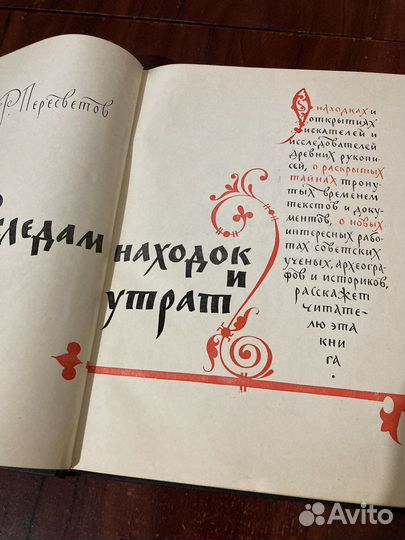 Р. Пересветов
По следам находок
и
утрат
О находках и
открытиях
искателей и
исследователей
древних рукопи-
сей, о раскрытых
тайнах трону-
тых временем
текстов и доку-
ментов, о новых
интересных рабо-
тах советских
ученых, археогра-
фов и историков,
расскажет
читате-
лю эта
кни
га.
Avito